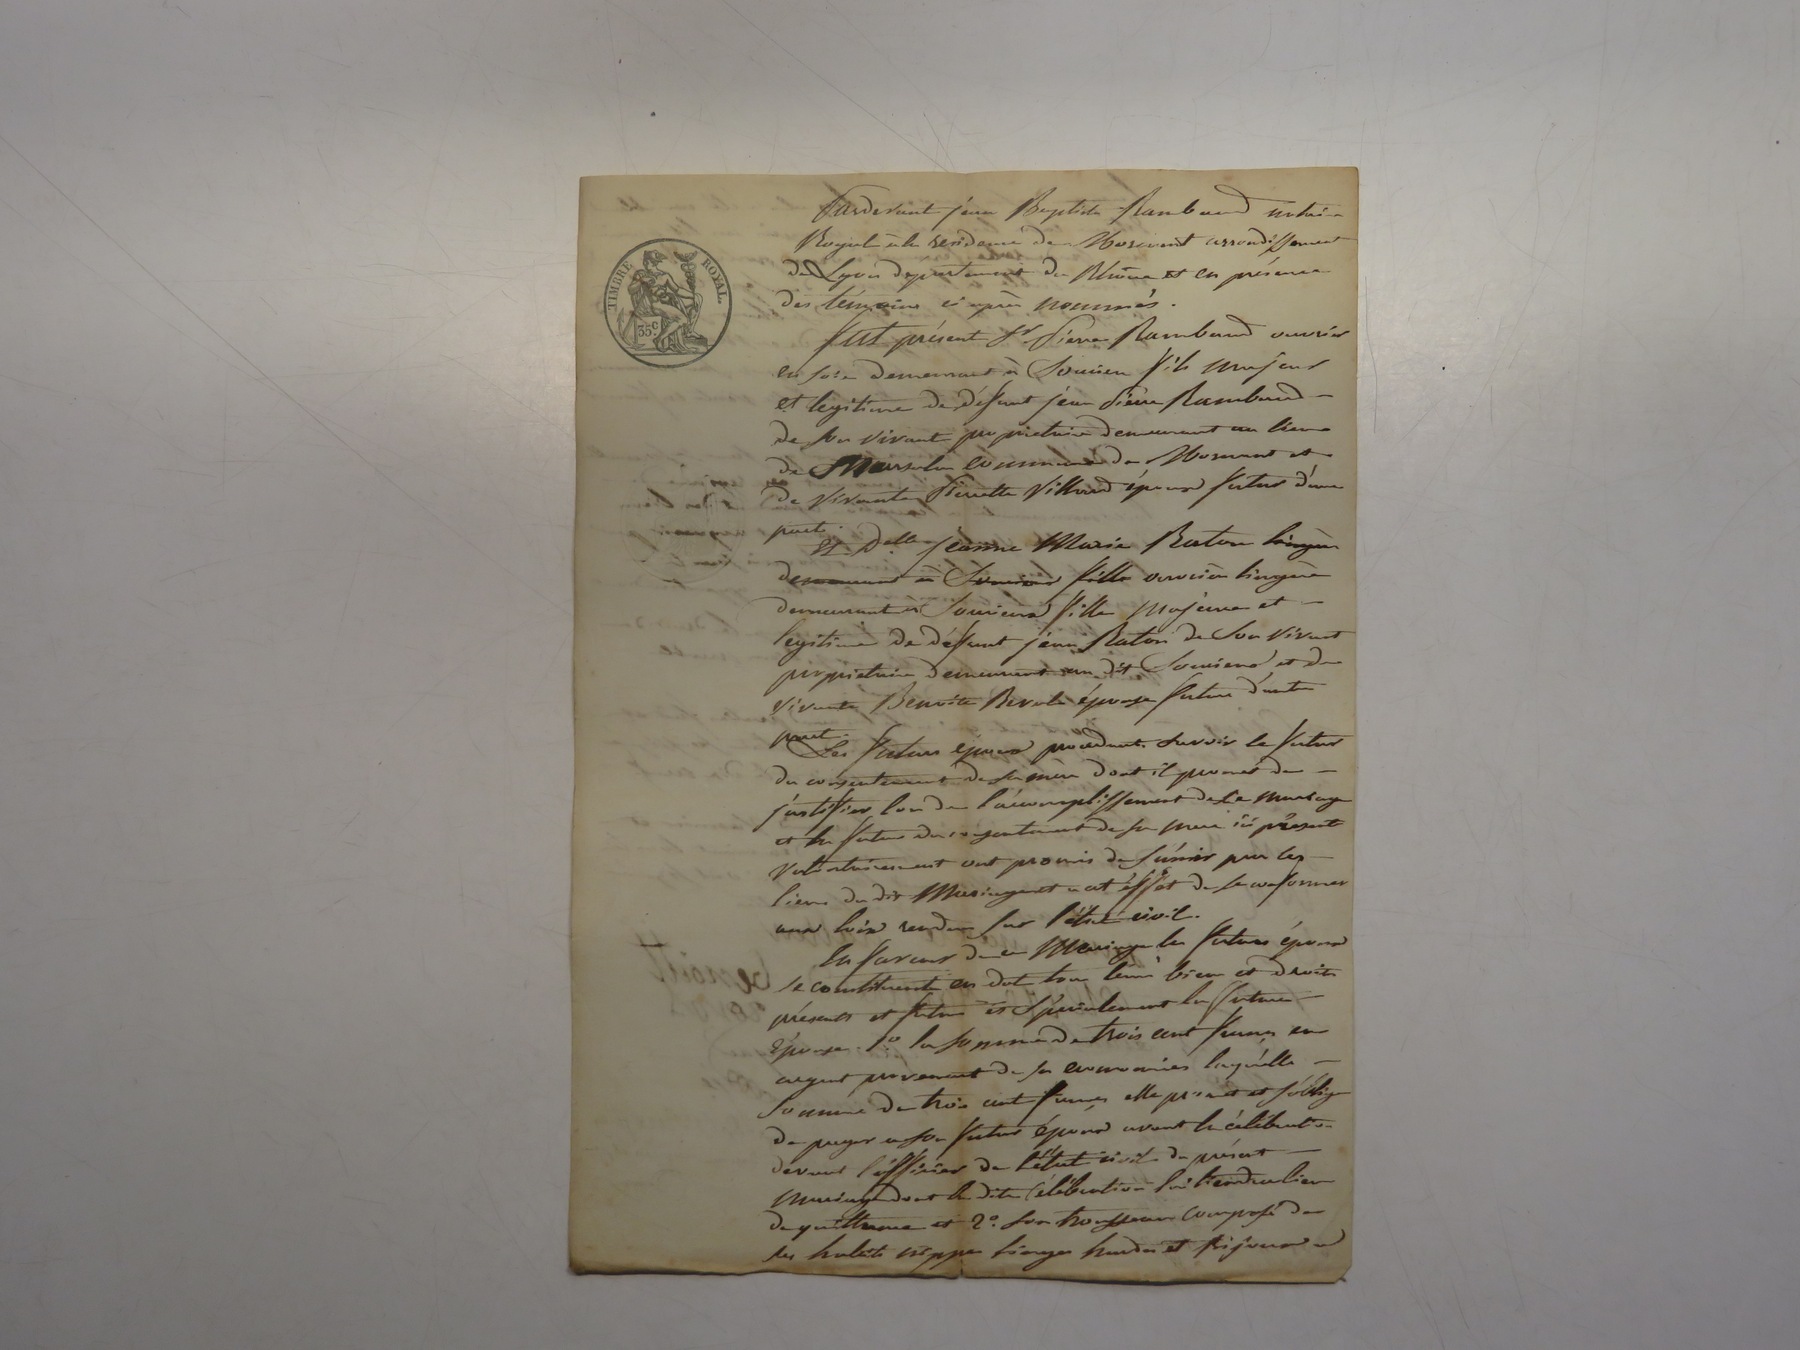 TIMBRE ROYAL.
35 c.
Pardevant jean Baptiste Rambaud notaire
Royal à la residence de Mornant arrondissement
de Lyon departement du Rhône et en présence
des témoins ci après nommés.
Fut présent Sr Pierre Rambaud ouvrier
en soie demeurant à Soucieu fils majeur
et legitime de défunt jean Pierre Rambaud
de son vivant propriétaire demeurant au lieu
de commune de Mornant et
de vivante Pierrette Villard époux futur d'une
part.
Et Delle Jeanne Marie Raton lingère
demeurant à Soucieu fille ouvrière lingère
demeurant à Soucieu fille majeure et
legitime de défunt jean Raton de son vivant
propriétaire demeurant au dit Soucieu et de
vivante Benoite épouse future d'autre
part.
Les futurs époux procedant savoir le futur
du consentement de sa mère dont il promet de
justifier lors de l'accomplissement de ce mariage
et la future du consentement de sa mere ici présent
volontairement ont promis de s'unir par les
liens du dit Mariage et a cet éffet de se conformer
aux loix rendues sur l'état civil.
En faveur de ce Mariage les futurs époux
se constituent en dot tous leurs biens et droits
présents et futurs et spécialement la future
épouse 1º la somme de trois cent francs en
argent provenant de ses economies laquelle
somme de trois cent francs elle promet et s'oblige
de payer a son futur époux avant la célébration
devant l'officier de l'état civil du présent
mariage dont la dite célébration lui tiendra lieu
de quittance et 2º. Son trousseau composé de
ses habits nippes linges hardes et bijoux